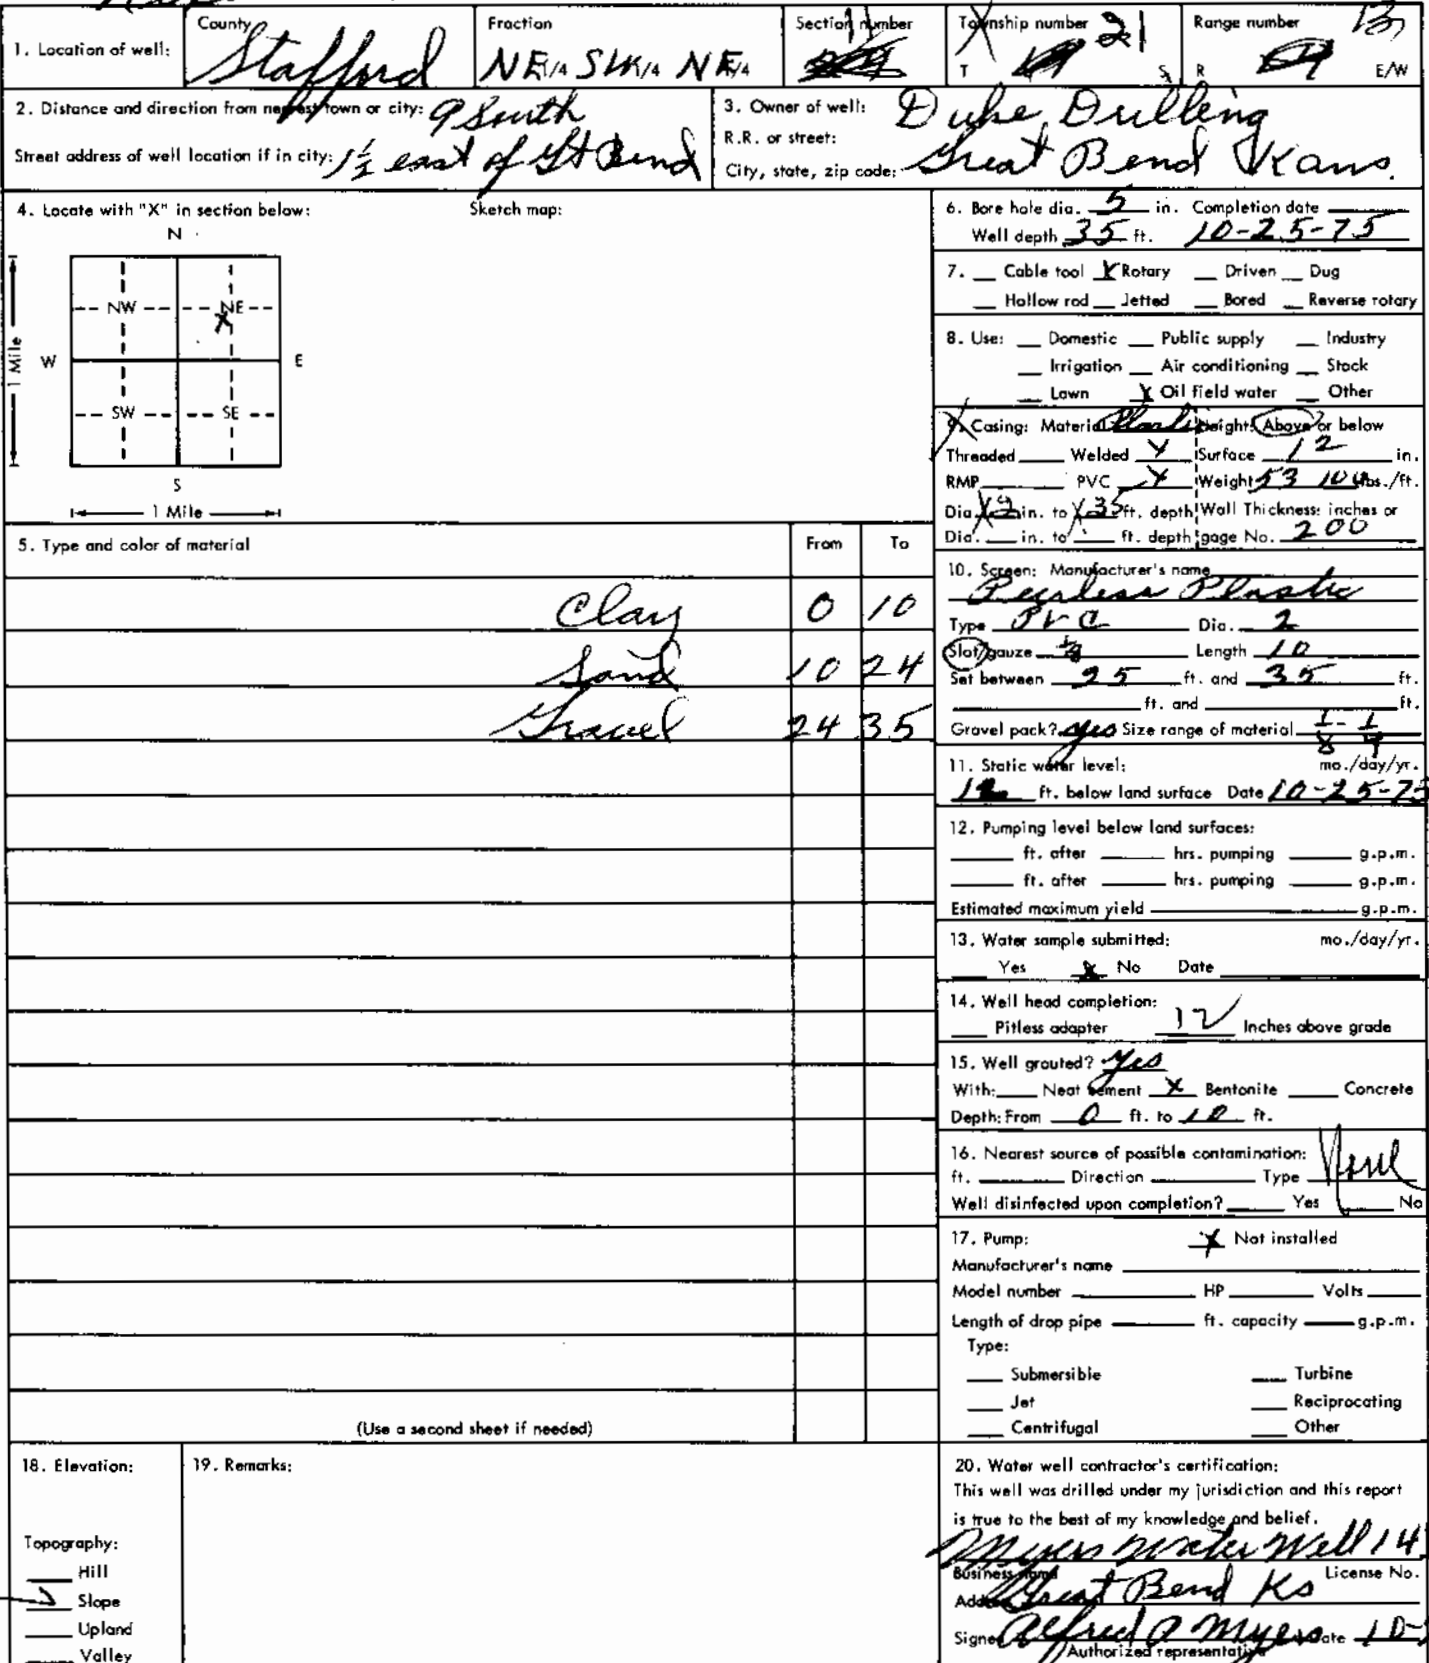 1. Location of well: County Stafford Fraction NE 1/4 SW 1/4 NE 1/4 Section number 11 Township number T 21 S Range number R 13 E/W
2. Distance and direction from nearest town or city: 9 South
Street address of well location if in city: 1½ east of Gt Bend
3. Owner of well: Duke Drilling
R.R. or street:
City, state, zip code: Great Bend Kans.
4. Locate with "X" in section below: Sketch map:
N
NW NE
X
W E
1 Mile
SW SE
S
1 Mile
5. Type and color of material From To
Clay 0 10
Sand 10 24
Gravel 24 35
(Use a second sheet if needed)
6. Bore hole dia. 5 in. Completion date
Well depth 35 ft. 10-25-75
7. Cable tool X Rotary Driven Dug
Hollow rod Jetted Bored Reverse rotary
8. Use: Domestic Public supply Industry
Irrigation Air conditioning Stock
Lawn X Oil field water Other
9. Casing: Material Height: Above or below
Threaded Welded X Surface 12 in.
RMP PVC X Weight 53 100 lbs./ft.
Dia. 2 in. to 35 ft. depth Wall Thickness: inches or
Dia. in. to ft. depth gage No. 200
10. Screen: Manufacturer's name
Peerless Plastic
Type PVC Dia. 2
Slot/gauze Length 10
Set between 25 ft. and 35 ft.
ft. and ft.
Gravel pack? yes Size range of material
11. Static water level: mo./day/yr.
12 ft. below land surface Date 10-25-75
12. Pumping level below land surfaces:
ft. after hrs. pumping g.p.m.
ft. after hrs. pumping g.p.m.
Estimated maximum yield g.p.m.
13. Water sample submitted: mo./day/yr.
Yes X No Date
14. Well head completion:
Pitless adapter 12 Inches above grade
15. Well grouted? yes
With: Neat cement X Bentonite Concrete
Depth: From 0 ft. to 10 ft.
16. Nearest source of possible contamination:
ft. Direction Type None
Well disinfected upon completion? Yes No
17. Pump: X Not installed
Manufacturer's name
Model number HP Volts
Length of drop pipe ft. capacity g.p.m.
Type:
Submersible Turbine
Jet Reciprocating
Centrifugal Other
18. Elevation:
Topography:
Hill
Slope
Upland
Valley
19. Remarks:
20. Water well contractor's certification:
This well was drilled under my jurisdiction and this report
is true to the best of my knowledge and belief.
Myers Water Well 14
Business name License No.
Address Great Bend Ks
Signed Alfred A Myers Date 10-
Authorized representative